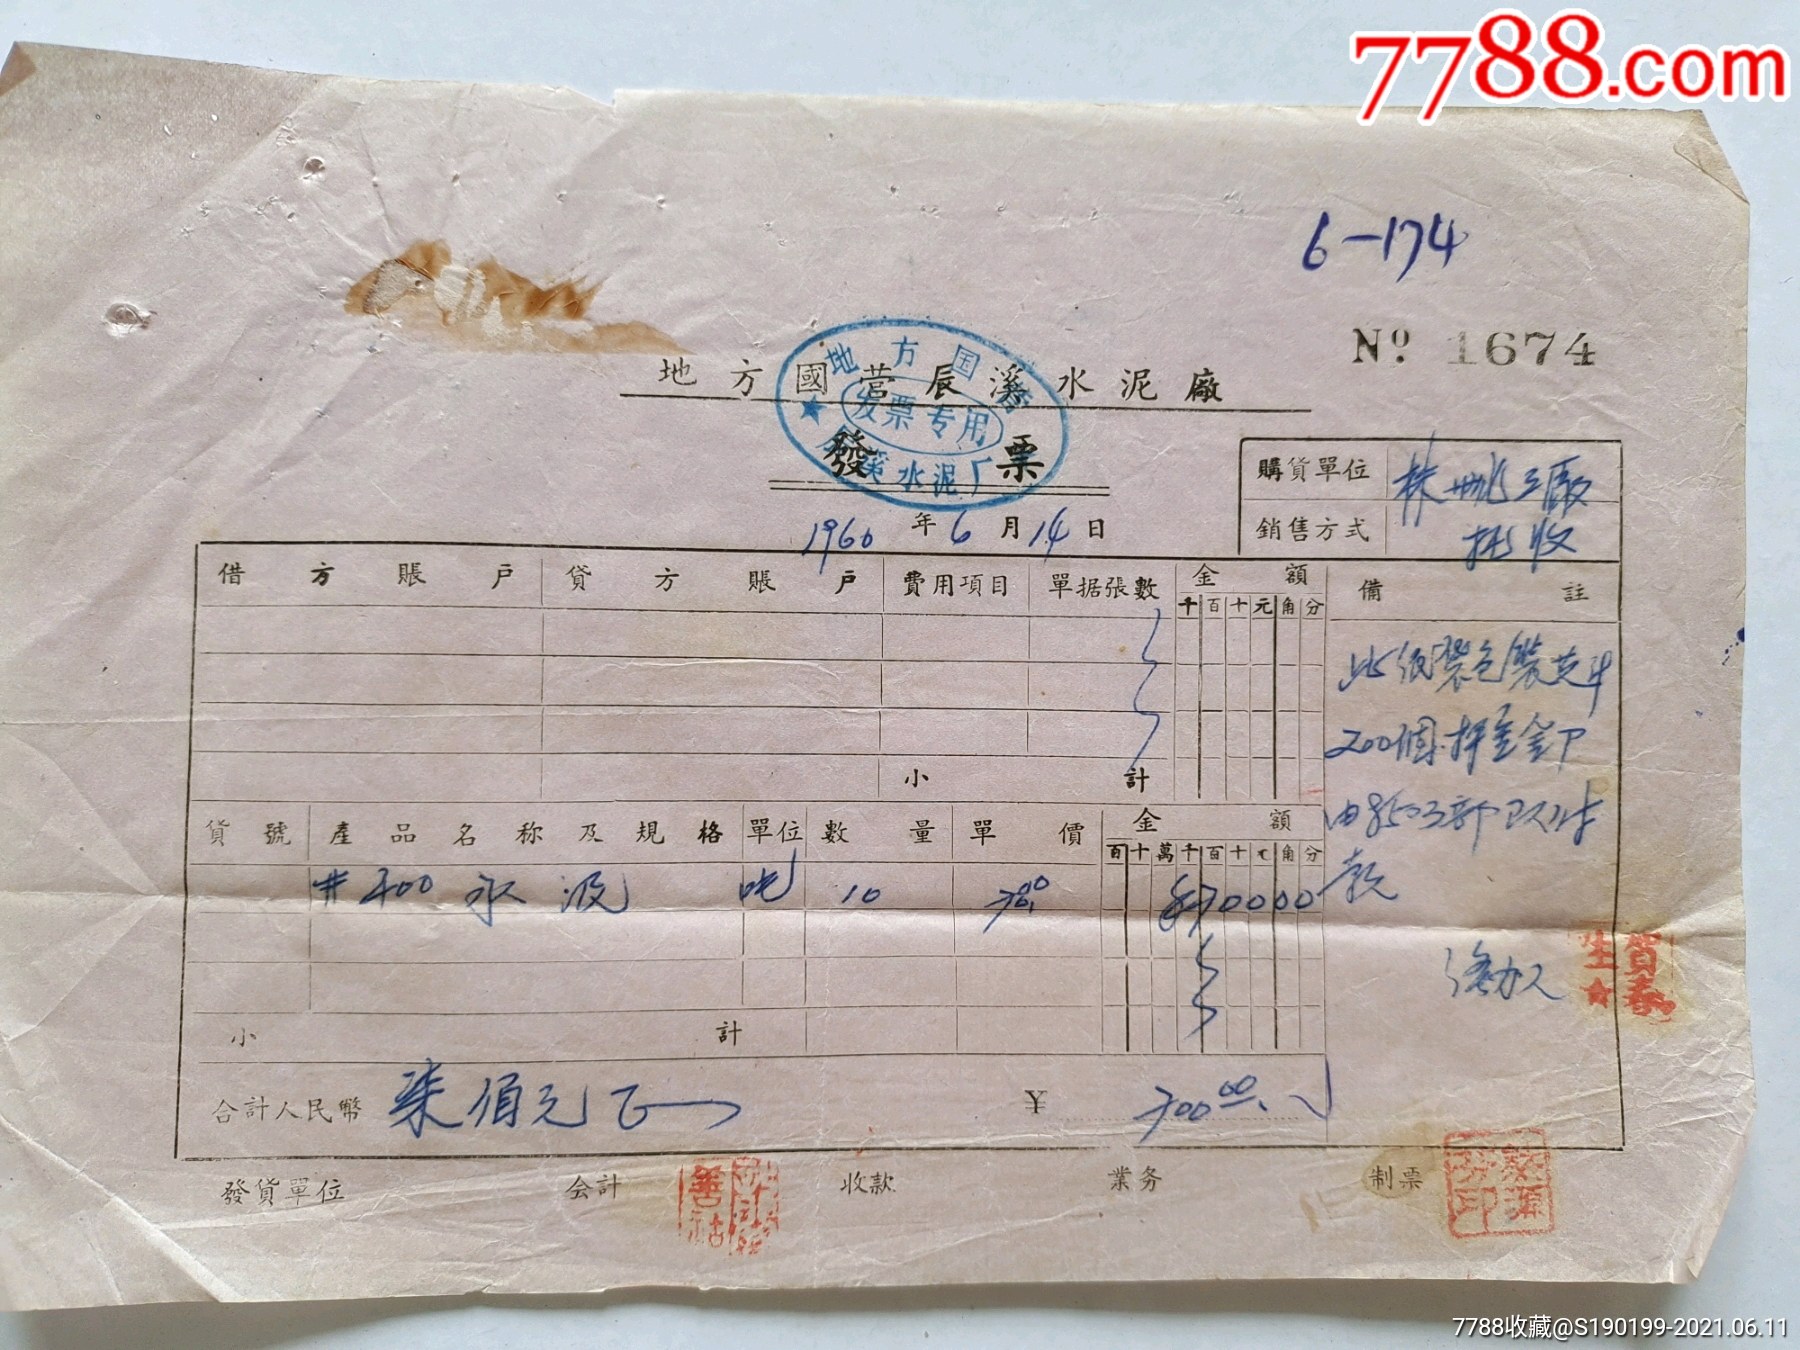 7788.com
6-174
№ 1674
地方國营辰溪水泥廠
發票
地方国营
发票专用
辰溪水泥厂
1960年6月14日
購貨單位 株洲 工廠
銷售方式 托收
借方賬戶 貸方賬戶 費用項目 單据張數 金額 備註
千百十元角分
此纸袋包装
200個押金
小計
款
貨號 產品名称及規格 單位 數量 單價 金額
百十萬千百十元角分
#400 水泥 吨 10 70.00 ¥70000
小計
賀春生
合計人民幣 柒佰元正 ¥ 700.00
發貨單位 会計 收款 業务 制票
7788收藏@S190199-2021.06.11